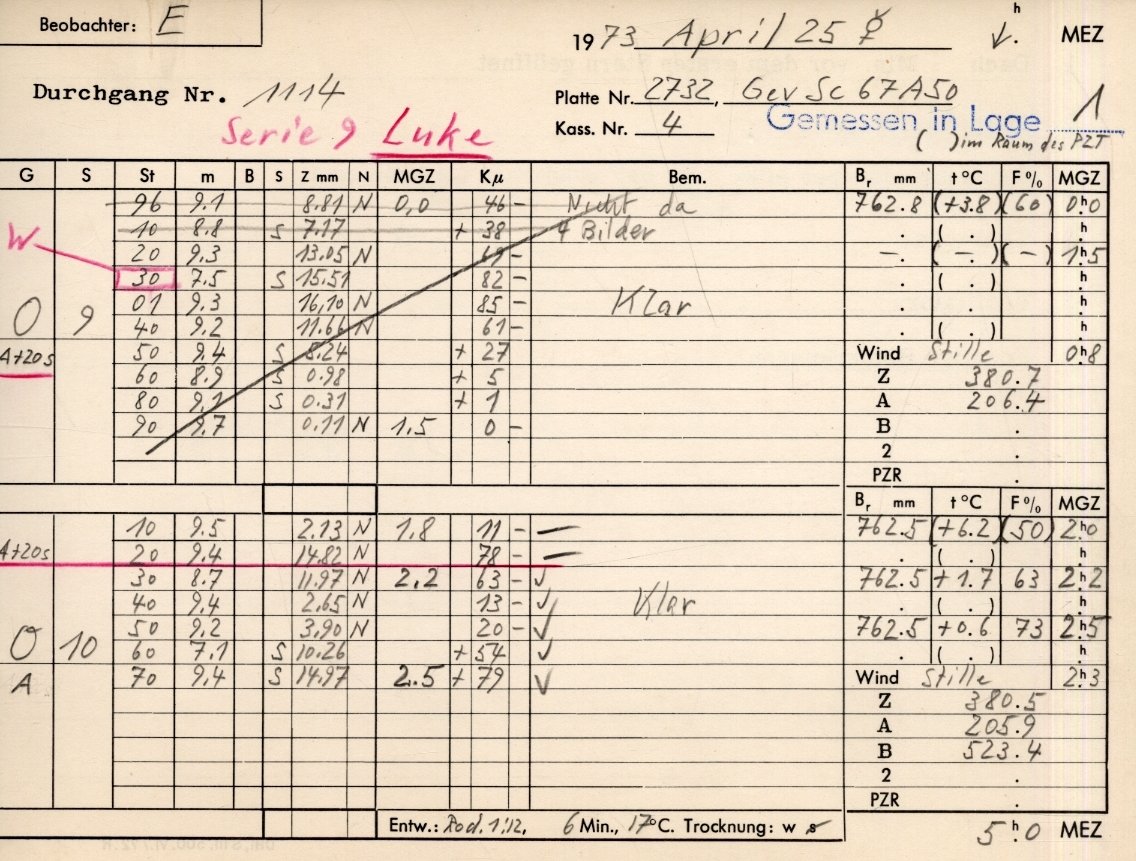 Beobachter: E
1973 April 25 ☿ h MEZ
Durchgang Nr. 1114
Platte Nr. 2732, Gev Sc 67A50
Serie 9 Luke
Kass. Nr. 4
Gemessen in Lage 1
( ) im Raum des PZT
G S St m B S Z mm N MGZ Kμ Bem. Br mm t °C F % MGZ
96 9.1 8.81 N 0,0 46 - Nicht da 762.8 (+3.8) (60) 0h0
10 8.8 S 7.17 + 38 4 Bilder . ( . ) h
W 20 9.3 13.05 N 69 - -. ( -. ) ( - ) 1h5
30 7.5 S 15.51 82 - . ( . ) h
O 9 01 9.3 16,10 N 85 - Klar . . h
40 9.2 11.66 N 61 - . ( . ) h
A+20s 50 9.4 S 8.24 + 27 Wind Stille 0h8
60 8.9 S 0.98 + 5 Z 380.7
80 9.1 S 0.31 + 1 A 206.4
90 9.7 0.11 N 1.5 0 - B .
2 .
PZR .
Br mm t °C F % MGZ
10 9.5 2.13 N 1.8 11 - — 762.5 (+6.2) (50) 2h0
A+20s 20 9.4 14.82 N 78 - — . ( . ) h
30 8.7 11.97 N 2.2 63 - ✓ 762.5 +1.7 63 2h2
40 9.4 2.65 N 13 - ✓ Klar . ( . ) h
50 9.2 3.90 N 20 - ✓ 762.5 +0.6 73 2h5
O 10 60 7.1 S 10.26 + 54 ✓ . ( . ) h
A 70 9.4 S 14.97 2.5 + 79 ✓ Wind Stille 2h3
Z 380.5
A 205.9
B 523.4
2 .
PZR .
Entw.: Rod. 1:12, 6 Min., 17°C. Trocknung: w s
5h0 MEZ